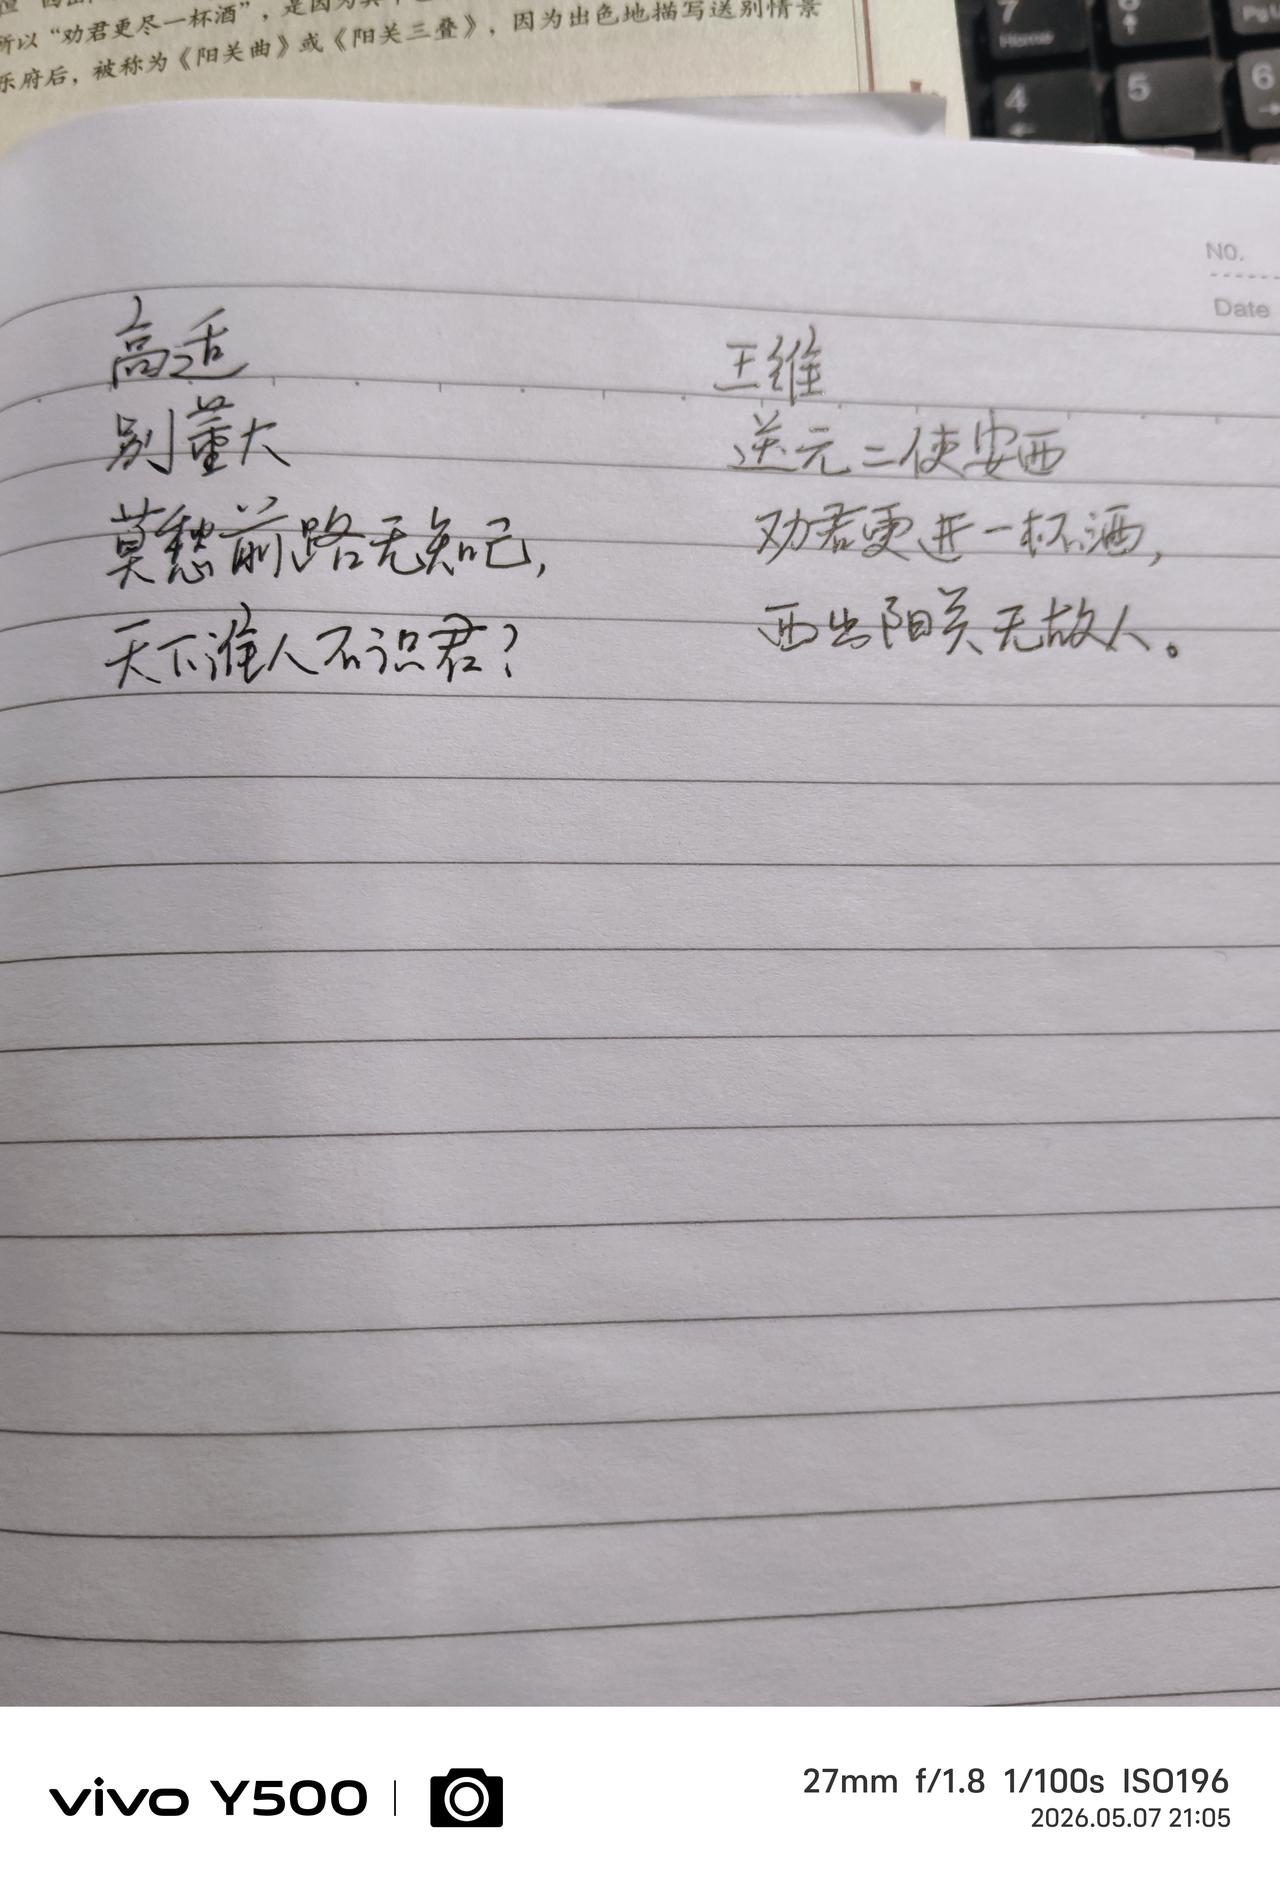 所以“劝君更尽一杯酒”，是因为其
乐府后，被称为《阳关曲》或《阳关三叠》，因为出色地描写送别情景
7
Home
4
5
6
NO.
Date
高适
别董大
莫愁前路无知己，
天下谁人不识君？
王维
送元二使安西
劝君更进一杯酒，
西出阳关无故人。
vivo Y500
27mm f/1.8 1/100s ISO196
2026.05.07 21:05